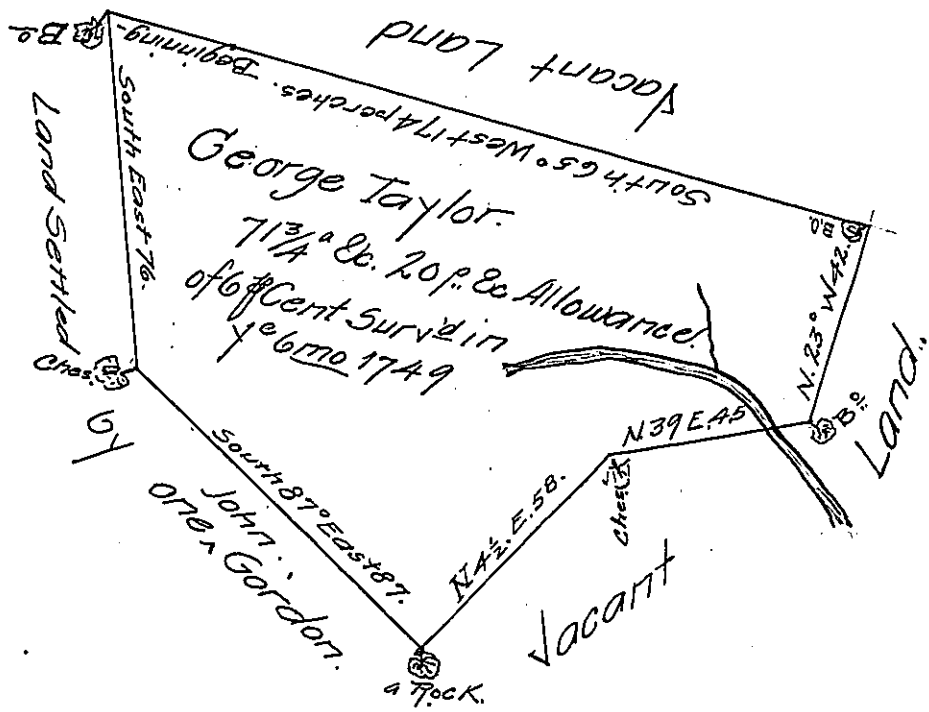 Vacant Land
B.O.
South 65° West 174 perches. Beginning.
South East 76.
Land Settled
by
one ^ Gordon.
John.
George Taylor.
71 3/4 a &c. 20 p.: &c Allowance
of 6 ⅌ Cent Surv'd in
ye 6 mo 1749
Ches.
South 87° East 87.
a Rock.
N 4 1/2. E. 58.
Ches.
N. 39 E. 45
B.O.
N. 23° W 42.
B.O.
Vacant
Land.